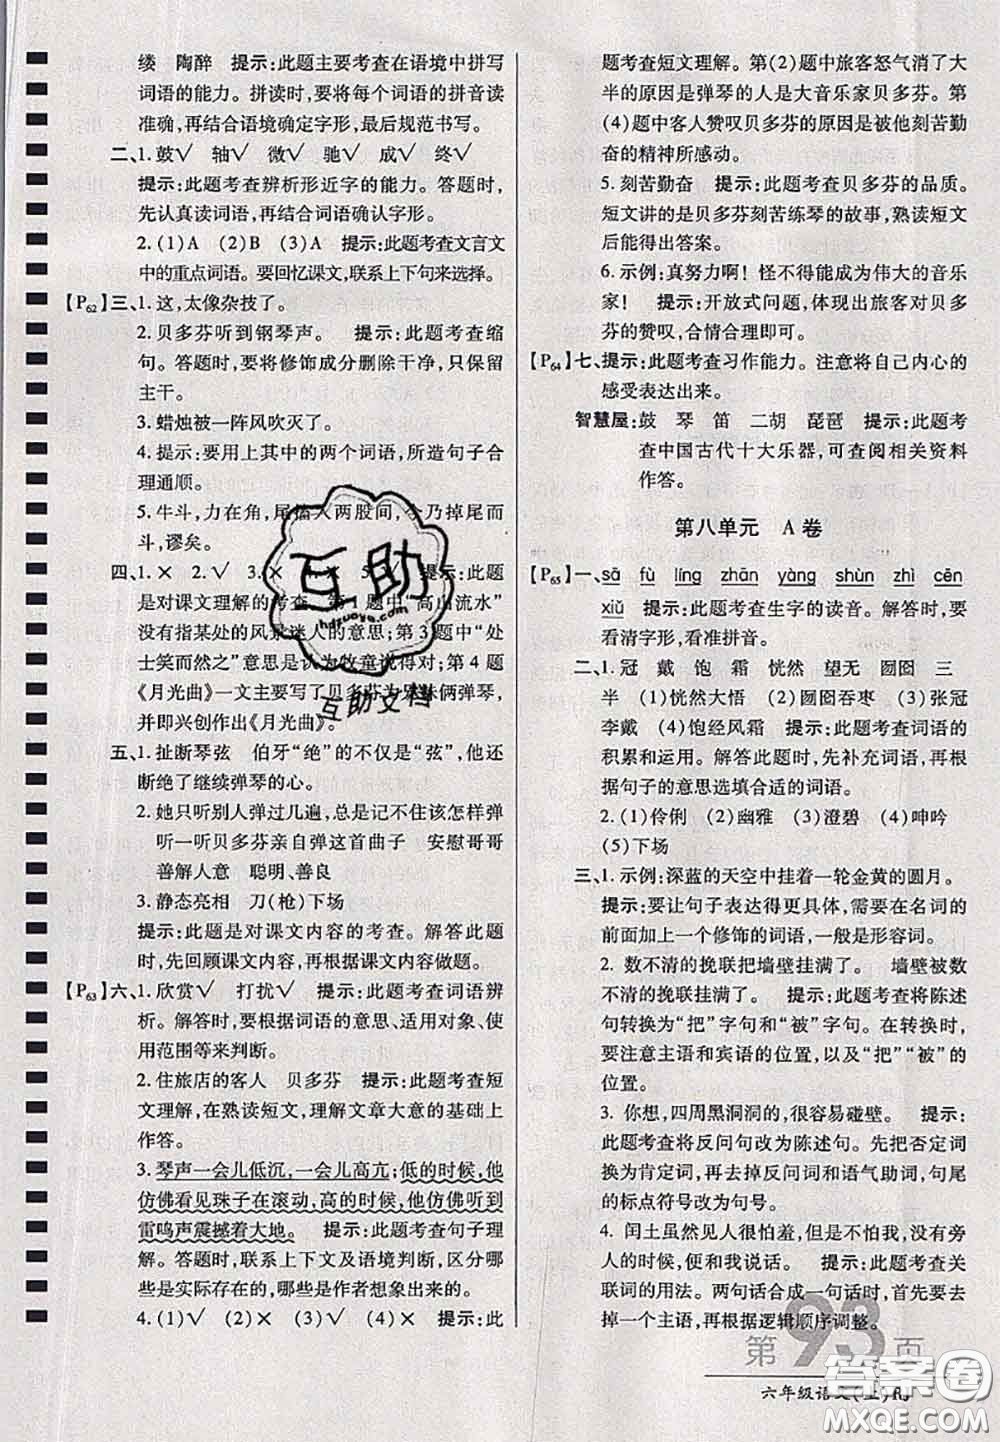 缕　陶醉　提示:此题主要考查在语境中拼写
词语的能力。拼读时,要将每个词语的拼音读
准确,再结合语境确定字形,最后规范书写。
二、1.鼓√　轴√　微√　驰√　成√　终√
提示:此题考查辨析形近字的能力。答题时,
先认真读词语,再结合词语确认字形。
2.(1)A　(2)B　(3)A　提示:此题考查文言文
中的重点词语。要回忆课文,联系上下句来选择。
【P62】三、1.这,太像杂技了。
2.贝多芬听到钢琴声。　提示:此题考查缩
句。答题时,要将修饰成分删除干净,只保留
主干。
3.蜡烛被一阵风吹灭了。
4.提示:要用上其中的两个词语,所造句子合
理通顺。
5.牛斗,力在角,尾搐入两股间,今乃掉尾而
斗,谬矣。
四、1.×　2.√　3.×　4.×　5.×　提示:此题
是对课文理解的考查。第1题中“高山流水”
没有指某处的风景迷人的意思;第3题中“处
士笑而然之”意思是认为牧童说得对;第4题
《月光曲》一文主要写了贝多芬为兄妹俩弹琴,
并即兴创作出《月光曲》。
五、1.扯断琴弦　伯牙“绝”的不仅是“弦”,他还
断绝了继续弹琴的心。
2.她只听别人弹过几遍,总是记不住该怎样弹
听一听贝多芬亲自弹这首曲子　安慰哥哥
善解人意　聪明、善良
3.静态亮相　刀(枪)下场
提示:此题是对课文内容的考查。解答此题
时,先回顾课文内容,再根据课文内容做题。
【P63】六、1.欣赏√　打扰√　提示:此题考查词语辨
析。解答时,要根据词语的意思、适用对象、使
用范围等来判断。
2.住旅店的客人　贝多芬　提示:此题考查短
文理解,在熟读短文,理解文章大意的基础上
作答。
3.琴声一会儿低沉,一会儿高亢;低的时候,他
仿佛看见珠子在滚动,高的时候,他仿佛听到
雷鸣声震撼着大地。　提示:此题考查句子理
解。答题时,联系上下文及语境判断,区分哪
些是实际存在的,哪些是作者想象出来的。
4.(1)√　(2)×　(3)×　(4)×　提示:此
题考查短文理解。第(2)题中旅客怒气消了大
半的原因是弹琴的人是大音乐家贝多芬。第
(4)题中客人赞叹贝多芬的原因是被他刻苦勤
奋的精神所感动。
5.刻苦勤奋　提示:此题考查贝多芬的品质。
短文讲的是贝多芬刻苦练琴的故事,熟读短文
后能得出答案。
6.示例:真努力啊!怪不得能成为伟大的音乐
家!　提示:开放式问题,体现出旅客对贝多
芬的赞叹,合情合理即可。
【P64】七、提示:此题考查习作能力。注意将自己内心的
感受表达出来。
智慧屋:鼓　琴　笛　二胡　琵琶　提示:此题考
查中国古代十大乐器,可查阅相关资料
作答。
第八单元　A卷
【P65】一、sā　fù　líng　zhān　yàng　shùn　zhì　cēn
xiǔ　提示:此题考查生字的读音。解答时,要
看清字形,看准拼音。
二、1.冠　戴　饱　霜　恍然　望无　囫囵　三
半　(1)恍然大悟　(2)囫囵吞枣　(3)张冠
李戴　(4)饱经风霜　提示:此题考查词语的
积累和运用。解答此题时,先补充词语,再根
据句子的意思选填合适的词语。
2.(1)伶俐　(2)幽雅　(3)澄碧　(4)呻吟
(5)下场
三、1.示例:深蓝的天空中挂着一轮金黄的圆月。
提示:要让句子表达得更具体,需要在名词的
前面加上一个修饰的词语,一般是形容词。
2. 数不清的挽联把墙壁挂满了。　墙壁被数
不清的挽联挂满了。　提示:此题考查将陈述
句转换为“把”字句和“被”字句。在转换时,
要注意主语和宾语的位置,以及“把”“被”的
位置。
3. 你想,四周黑洞洞的,很容易碰壁。　提示:
此题考查将反问句改为陈述句。先把否定词
换为肯定词,再去掉反问词和语气助词,句尾
的标点符号改为句号。
4. 闰土虽然见人很怕羞,但是不怕我,没有旁
人的时候,便和我说话。　提示:此题考查关
联词的用法。两句话合成一句话时,首先要去
掉一个主语,再根据逻辑顺序调整。
第93页
六年级语文(上)RJ
互助
hdzuoye.com
互助文档
答案圈
MXQE.COM